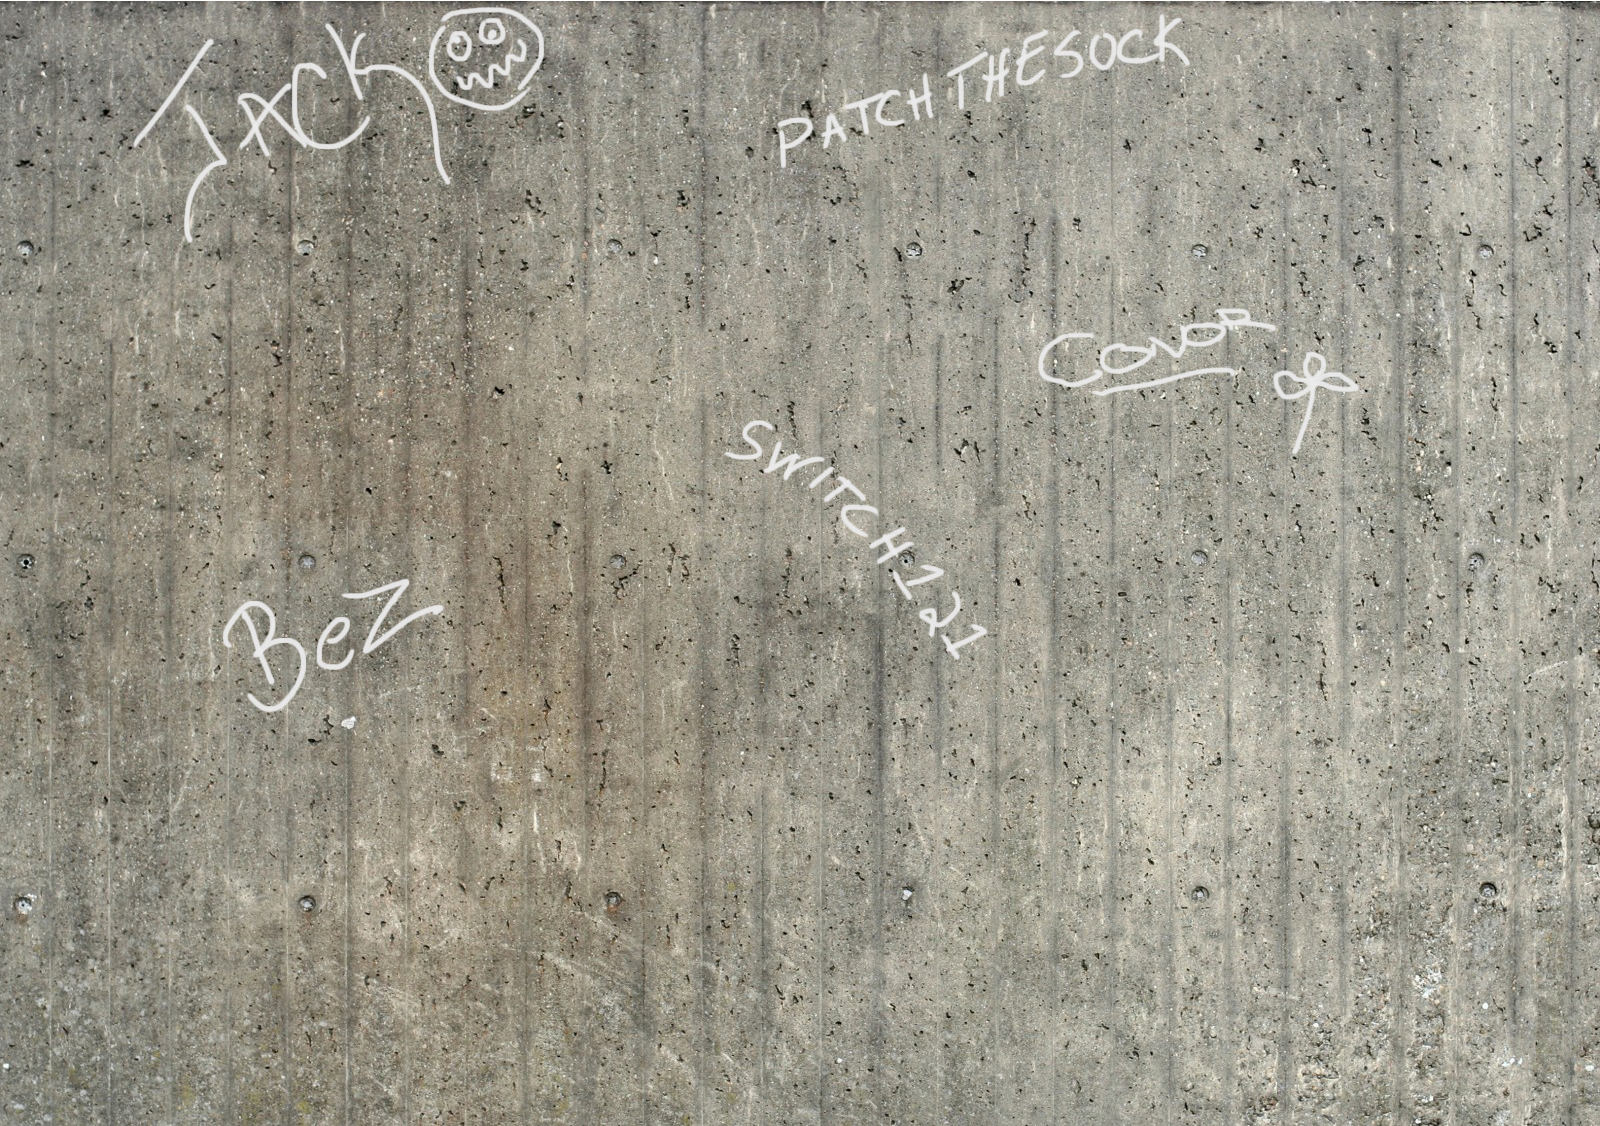 JACK
PATCHTHESOCK
Conor
SWITCH121
Bez